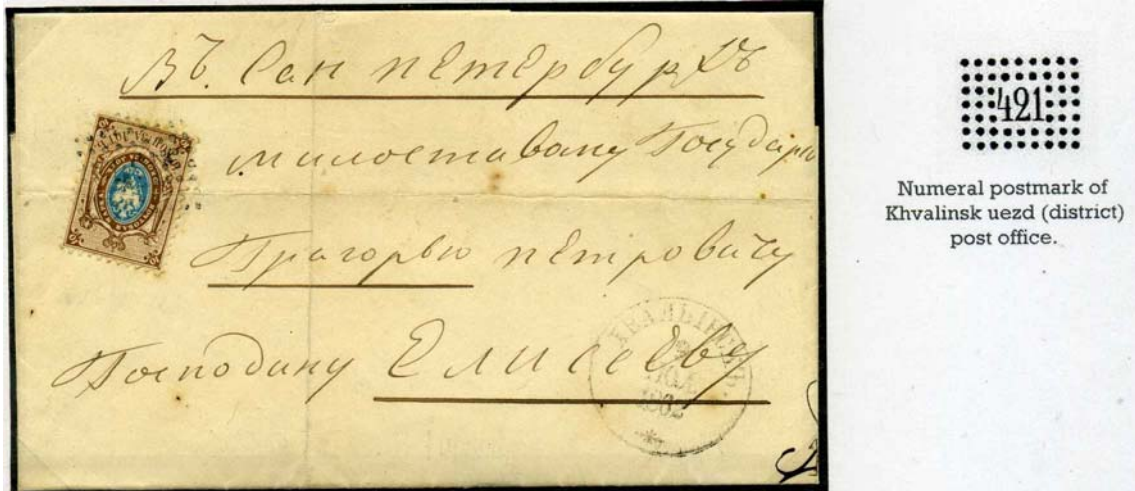 Въ. Сан петербурхъ
милостиваму Государю
Григорью петровичу
Господину Елисееву
ХВАЛЫНСКЪ.
ІЮЛ
1862
421
Numeral postmark of
Khvalinsk uezd (district)
post office.